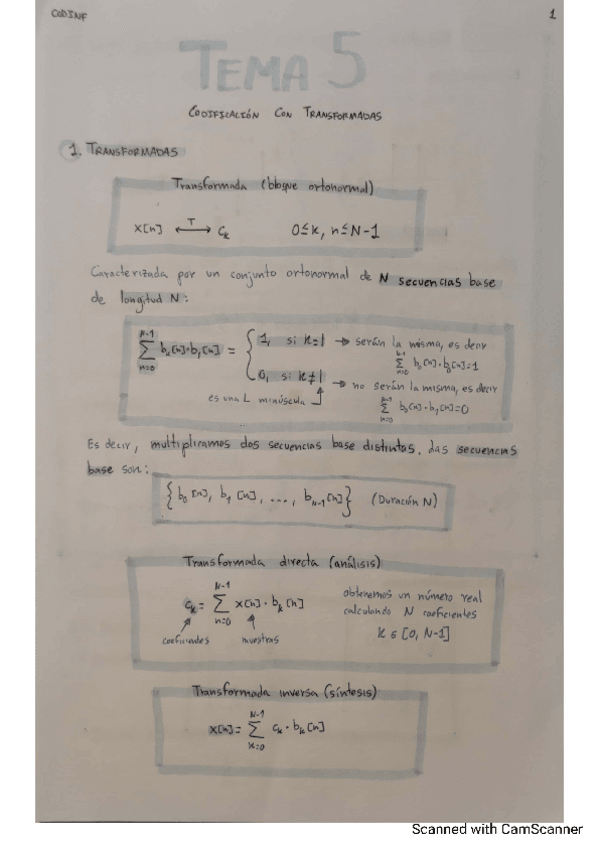 CODINF
1
TEMA 5
CODIFICACIÓN CON TRANSFORMADAS
1. TRANSFORMADAS
Transformada (bloque ortonormal)
x[n] ←T→ cₖ 0≤k, n≤N-1
Caracterizada por un conjunto ortonormal de N secuencias base
de longitud N:
N-1 ∑ n=0 bₖ[n]·bₗ[n] = { 1, si k=l → serán la misma, es decir
N-1 ∑ n=0 b₀[n]·b₀[n]=1
0, si k≠l → no serán la misma, es decir
es una L minúscula
N-1 ∑ n=0 b₀[n]·b₁[n]=0
Es decir, multiplicamos dos secuencias base distintas, las secuencias
base son:
{b₀[n], b₁[n], ..., b_N-1[n]} (Duración N)
Transformada directa (análisis)
cₖ = N-1 ∑ n=0 x[n]·bₖ[n]
coeficientes muestras
obtenemos un número real
calculando N coeficientes
k ∈ [0, N-1]
Transformada inversa (síntesis)
x[n] = N-1 ∑ k=0 cₖ·bₖ[n]
Scanned with CamScanner